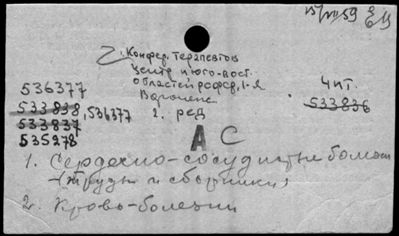 15/VIII 59
2. Конфер. терапевтов
центр. и юго-вост.
областей РСФСР, 1-я
Воронеж
2. ред
536377
533838, 536377
533837
535278
Чит.
533836
А С
1. Сердечно-сосудистые болезни
(труды и сборники)
2. Кровь-болезни